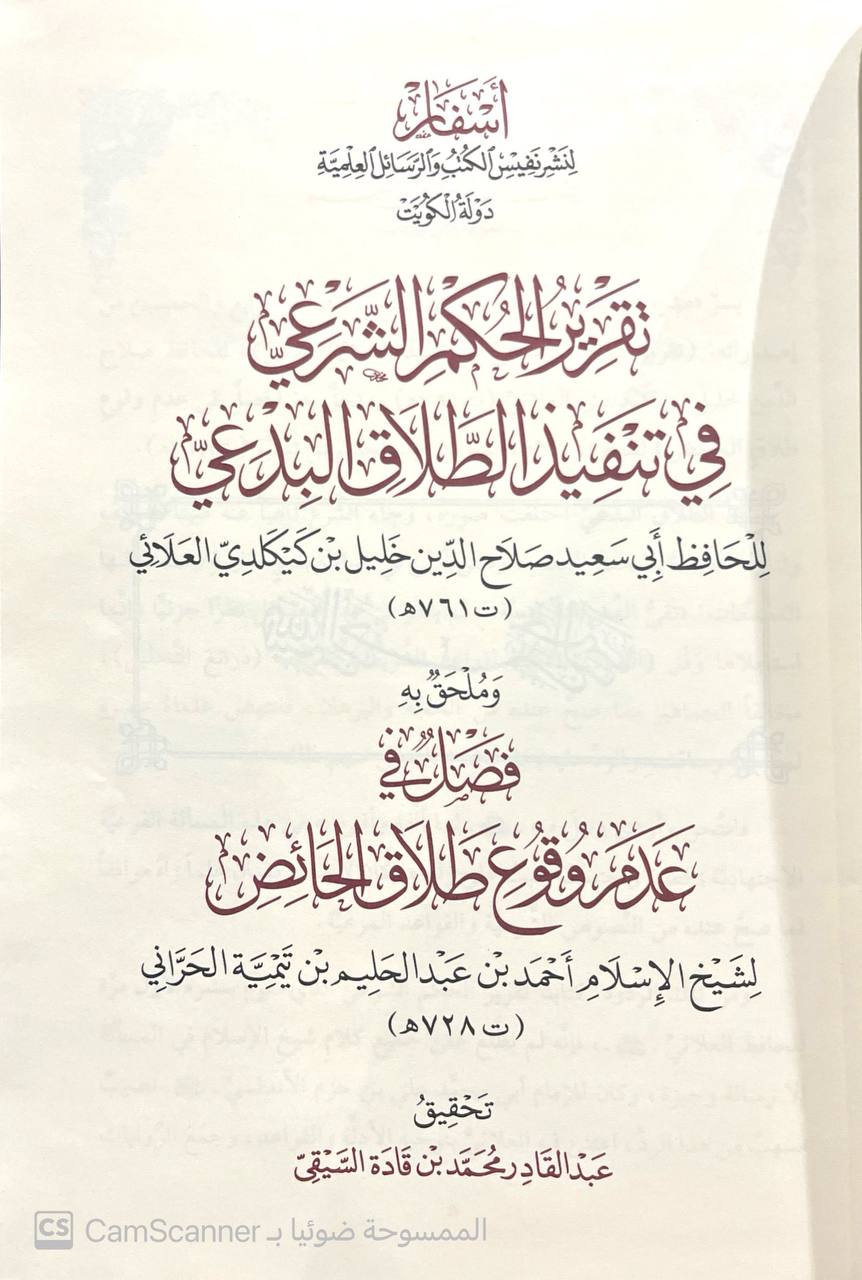 أسفار
لِنَشْرِ نَفِيسِ الكُتُبِ وَالرَّسَائِلِ العِلْمِيَّةِ
دَوْلَةُ الكُوَيْت
تَقْرِيْرُ الحُكْمِ الشَّرْعِيِّ
فِي تَنْفِيذِ الطَّلَاقِ البِدْعِيِّ
لِلْحَافِظِ أَبِي سَعِيد صَلَاح الدِّين خَلِيل بْن كَيْكَلدِيّ العَلَائِي
(ت ٧٦١ هـ)
وَمُلْحَقٌ بِهِ
فَصْلٌ فِي
عَدَمِ وُقُوعِ طَلَاقِ الحَائِضِ
لِشَيْخِ الإِسْلَامِ أَحْمَد بْن عَبْد الحَلِيم بْن تَيْمِيَّة الحَرَّانِي
(ت ٧٢٨ هـ)
تَحْقِيقُ
عَبْد القَادِر مُحَمَّد بْن قَادَة السِّيْقِيّ
الممسوحة ضوئيا بـ CamScanner
CS